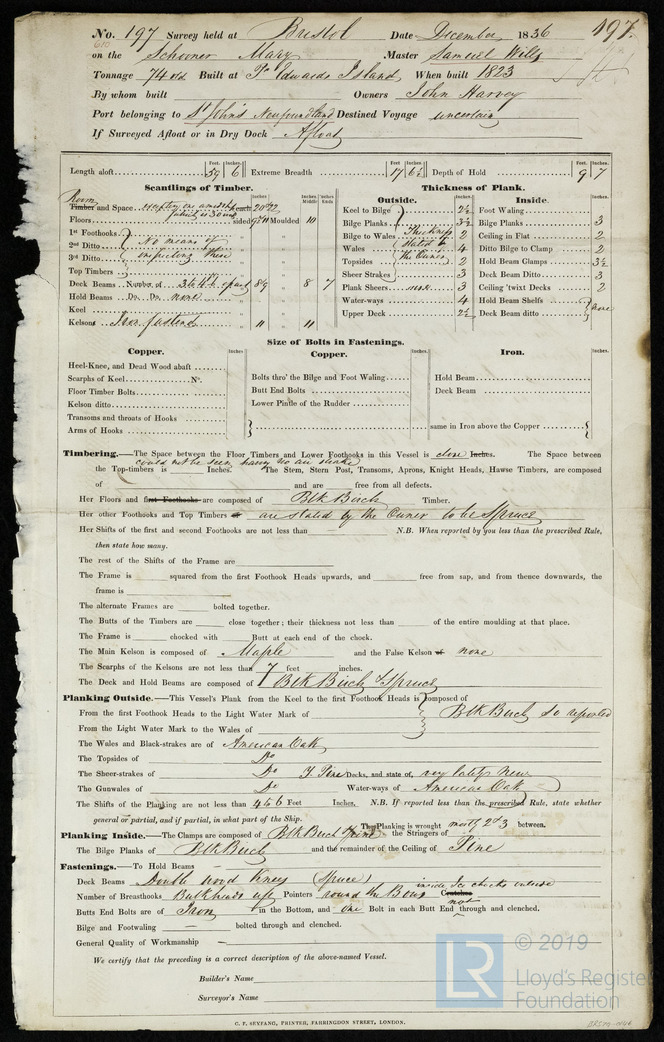 No. 197 Survey held at Bristol Date December 1836 197.
on the Schooner Mary Master Samuel Wills
Tonnage 74 Built at Po Edwards Island When built 1823
By whom built Owners John Harvey
Port belonging to St John's Newfoundland Destined Voyage uncertain
If Surveyed Afloat or in Dry Dock Afloat
Feet. Inches. Feet. Inches. Feet. Inches.
Length aloft 59 6 Extreme Breadth 17 6½ Depth of Hold 9 7
Scantlings of Timber. Thickness of Plank.
Room
Timber and Space each Outside. Inches. Inside. Inches.
Floors sided Moulded 10 Keel to Bilge 2½ Foot Waling
1st Foothooks Bilge Planks 3½ Bilge Planks 3
2nd Ditto No means of Bilge to Wales The Knees 2 Ceiling in Flat 2
3rd Ditto inspecting them Wales stated by 4 Ditto Bilge to Clamp 2
Top Timbers Topsides the Owner 2 Hold Beam Clamps 3½
Deck Beams Number of apart 8½ 8 7 Sheer Strakes 3 Deck Beam Ditto 3
Hold Beams Do. Do. none Plank Sheers 3 Ceiling 'twixt Decks 2
Keel Water-ways 4 Hold Beam Shelfs
Kelsons Iron fastened 11 11 Upper Deck 2½ Deck Beam ditto none
Size of Bolts in Fastenings.
Copper. Inches. Copper. Inches. Iron. Inches.
Heel-Knee, and Dead Wood abaft
Scarphs of Keel No. Bolts thro' the Bilge and Foot Waling Hold Beam
Floor Timber Bolts Butt End Bolts Deck Beam
Kelson ditto Lower Pintle of the Rudder
Transoms and throats of Hooks
Arms of Hooks same in Iron above the Copper
Timbering.—The Space between the Floor Timbers and Lower Foothooks in this Vessel is close Inches. The Space between
could not be seen having no air strake
the Top-timbers is Inches. The Stem, Stern Post, Transoms, Aprons, Knight Heads, Hawse Timbers, are composed
of and are free from all defects.
Her Floors and first Foothooks are composed of Blk Birch Timber.
Her other Foothooks and Top Timbers of are stated by the Owner to be Spruce
Her Shifts of the first and second Foothooks are not less than N.B. When reported by you less than the prescribed Rule,
then state how many.
The rest of the Shifts of the Frame are
The Frame is squared from the first Foothook Heads upwards, and free from sap, and from thence downwards, the
frame is
The alternate Frames are bolted together.
The Butts of the Timbers are close together; their thickness not less than of the entire moulding at that place.
The Frame is chocked with Butt at each end of the chock.
The Main Kelson is composed of Maple and the False Kelson of none
The Scarphs of the Kelsons are not less than 7 feet inches.
The Deck and Hold Beams are composed of Blk Birch & Spruce
Planking Outside.—This Vessel's Plank from the Keel to the first Foothook Heads is composed of
From the first Foothook Heads to the Light Water Mark of Blk Birch so reported
From the Light Water Mark to the Wales of
The Wales and Black-strakes are of American Oak
The Topsides of Do
The Sheer-strakes of Do Y. Pine Decks, and state of, very lately New
The Gunwales of Do Water-ways of American Oak
The Shifts of the Planking are not less than 4 & 6 Feet Inches. N.B. If reported less than the prescribed Rule, state whether
general or partial, and if partial, in what part of the Ship. The Planking is wrought mostly 2 & 3 between.
Planking Inside.—The Clamps are composed of Blk Birch & Pine the Stringers of
The Bilge Planks of Blk Birch and the remainder of the Ceiling of Pine
Fastenings.—To Hold Beams
Deck Beams Double wood Knees (Spruce)
Number of Breasthooks Bulkheads up Pointers round the Bows inside Ice chocks outside Crutches
Butts End Bolts are of Iron in the Bottom, and one Bolt in each Butt End not through and clenched.
Bilge and Footwaling — bolted through and clenched.
General Quality of Workmanship —
We certify that the preceding is a correct description of the above-named Vessel.
Builder's Name
Surveyor's Name
C. F. SEYFANG, PRINTER, FARRINGDON STREET, LONDON.
LR © 2019
Lloyd's Register
Foundation